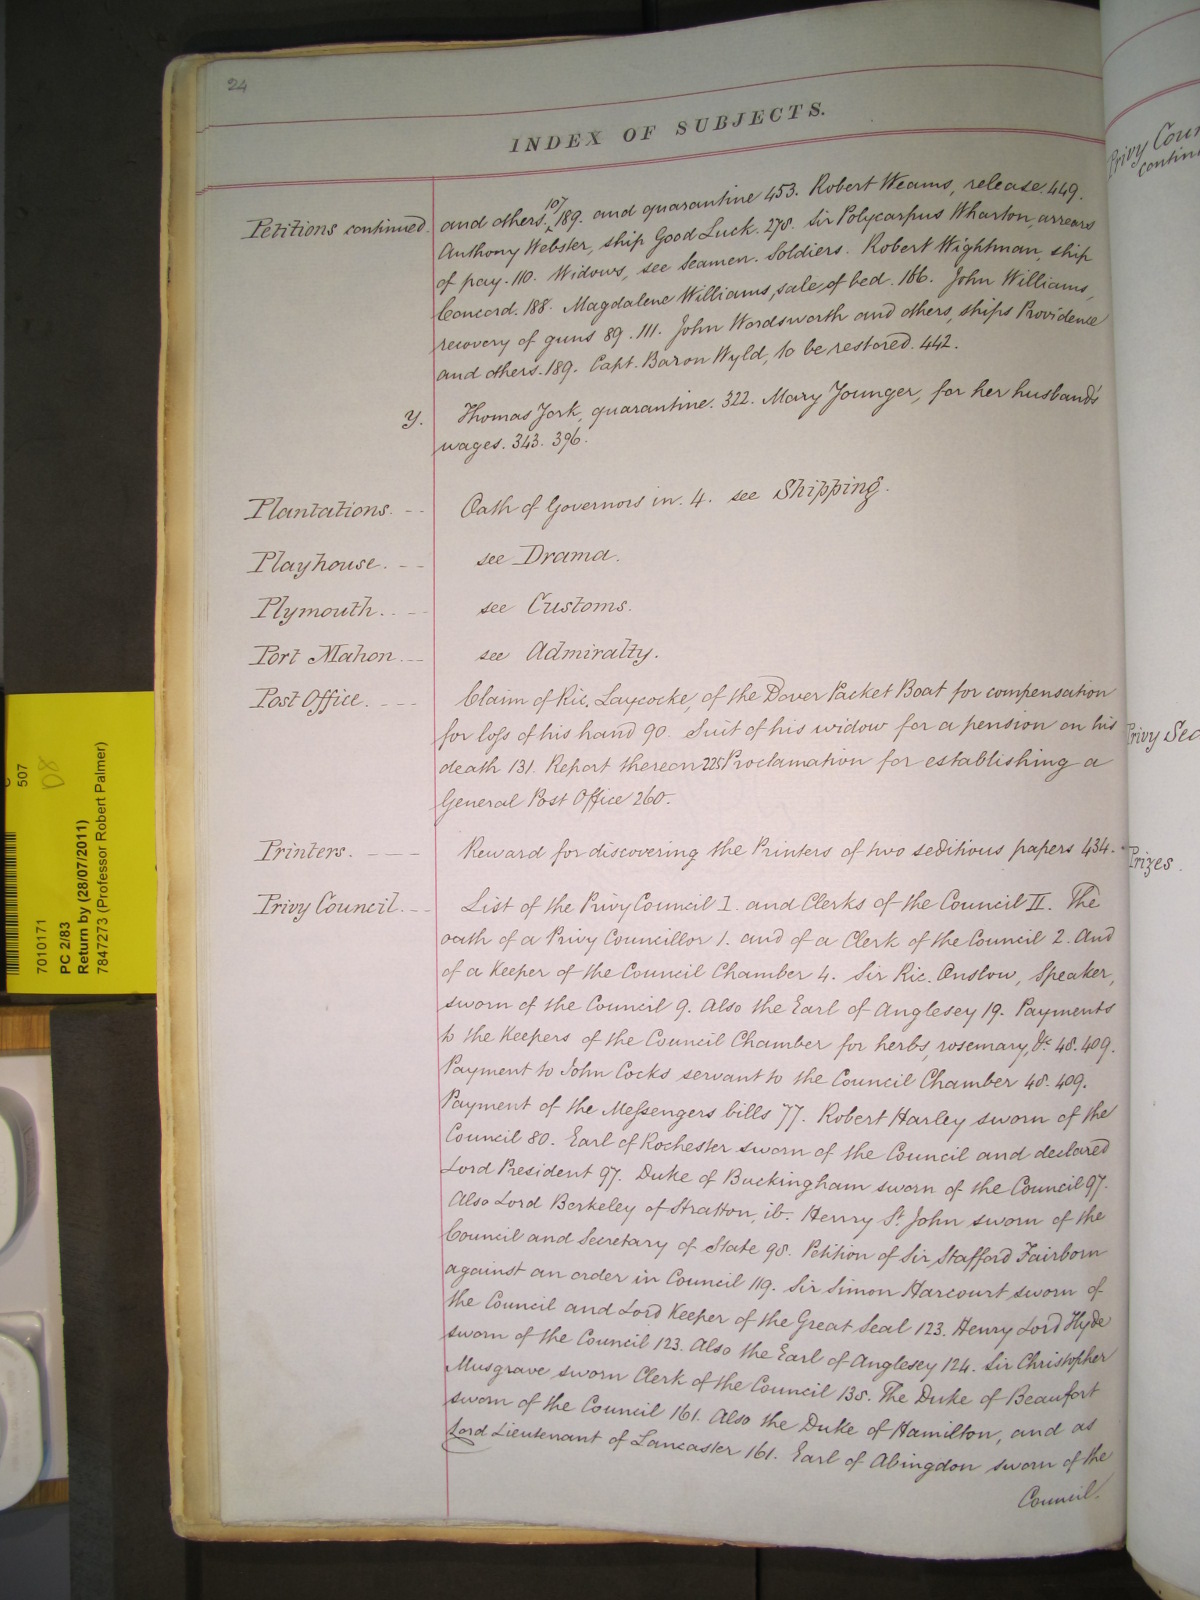 24
INDEX OF SUBJECTS.
Petitions continued.
107
and others. 189. and quarantine 453. Robert Weams, release. 449.
Anthony Webster, ship Good Luck. 278. Sir Polycarpus Wharton, arrears
of pay. 110. Widows, see Seamen. Soldiers. Robert Wightman, ship
Concord. 188. Magdalene Williams, sale of bed. 186. John Williams,
recovery of guns 89. 111. John Wordsworth and others, ships Providence
and others. 189. Capt. Baron Wyld, to be restored. 442.
Y. Thomas York, quarantine. 322. Mary Younger, for her husband's
wages. 343. 396.
Plantations. -- Oath of Governors in. 4. see Shipping.
Playhouse. -- see Drama.
Plymouth. -- see Customs.
Port Mahon. -- see Admiralty.
Post Office. --- Claim of Ric. Laycocke, of the Dover Packet Boat for compensation
for loss of his hand 90. Suit of his widow for a pension on his
death 131. Report thereon 225 Proclamation for establishing a
General Post Office 260.
Printers. --- Reward for discovering the Printers of two seditious papers 434.
Privy Council. -- List of the Privy Council I. and Clerks of the Council II. The
oath of a Privy Councillor 1. and of a Clerk of the Council 2. And
of a Keeper of the Council Chamber 4. Sir Ric. Onslow, Speaker,
sworn of the Council 9. Also the Earl of Anglesey 19. Payments
to the Keepers of the Council Chamber for herbs, rosemary, &c 48. 409.
Payment to John Cocks servant to the Council Chamber 48. 409.
Payment of the Messengers bills 77. Robert Harley sworn of the
Council 80. Earl of Rochester sworn of the Council and declared
Lord President 97. Duke of Buckingham sworn of the Council 97.
Also Lord Berkeley of Stratton, ib. Henry St. John sworn of the
Council and Secretary of State 98. Petition of Sir Stafford Fairborn
against an order in Council 119. Sir Simon Harcourt sworn of
the Council and Lord Keeper of the Great Seal 123. Henry Lord Hyde
sworn of the Council 123. Also the Earl of Anglesey 124. Sir Christopher
Musgrave sworn Clerk of the Council 135. The Duke of Beaufort
sworn of the Council 161. Also the Duke of Hamilton, and as
Lord Lieutenant of Lancaster 161. Earl of Abingdon sworn of the
Council.
507
D8
7010171
PC 2/83
Return by (28/07/2011)
7847273 (Professor Robert Palmer)
Privy Coun
contin
Privy Sea
Prizes.